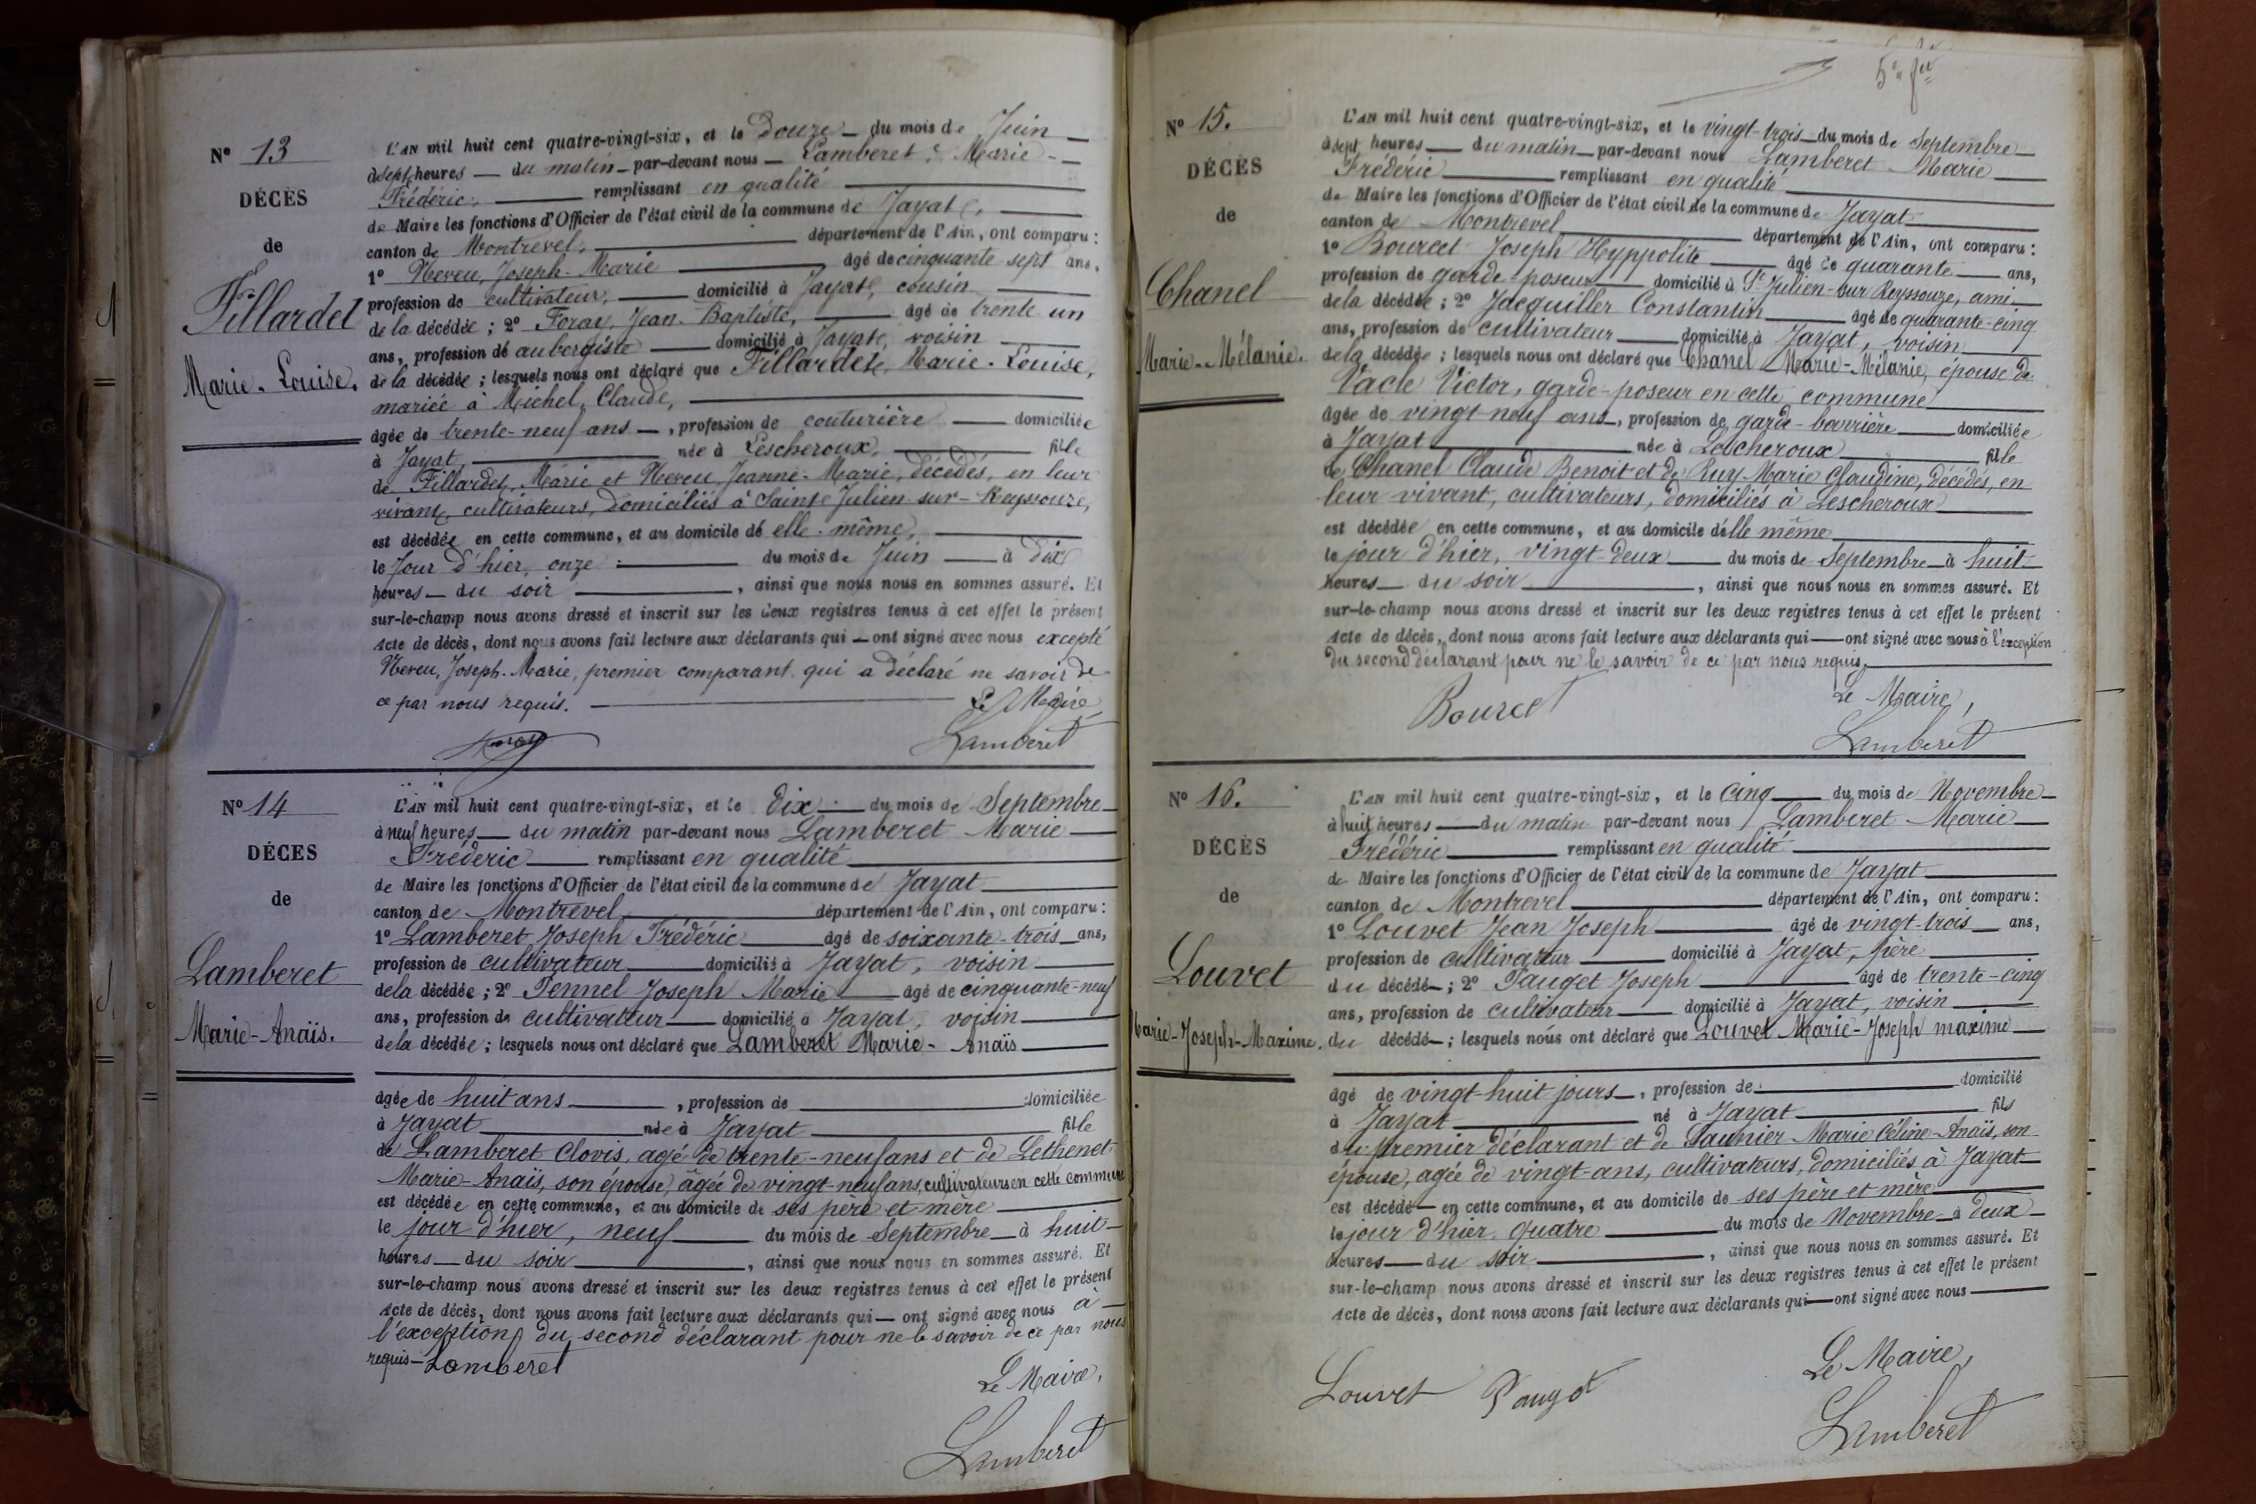 N° 13
DÉCÈS
de
Fillardet
Marie-Louise.
L'AN mil huit cent quatre-vingt-six, et le Douze du mois de Juin
à sept heures du matin par-devant nous Lamberet, Marie-
Frédéric, remplissant en qualité
de Maire les fonctions d'Officier de l'état civil de la commune de Jayat,
canton de Montrevel, département de l'Ain, ont comparu :
1° Neveu, Joseph-Marie âgé de cinquante sept ans,
profession de cultivateur, domicilié à Jayat, cousin
de la décédée ; 2° Foray, Jean-Baptiste, âgé de trente un
ans, profession de aubergiste domicilié à Jayat, voisin
de la décédée ; lesquels nous ont déclaré que Fillardet, Marie-Louise,
mariée à Michel, Claude,
âgée de trente-neuf ans , profession de couturière domiciliée
à Jayat, née à Lescheroux, fille
de Fillardet, Marie et Neveu Jeanne-Marie, décédés, en leur
vivant, cultivateurs, domiciliés à Saint Julien-sur-Reyssouze,
est décédée en cette commune, et au domicile de elle-même,
le Jour d'hier, onze du mois de Juin à dix
heures du soir , ainsi que nous nous en sommes assuré. Et
sur-le-champ nous avons dressé et inscrit sur les deux registres tenus à cet effet le présent
Acte de décès, dont nous avons fait lecture aux déclarants qui ont signé avec nous excepté
Neveu, Joseph-Marie, premier comparant qui a déclaré ne savoir de
ce par nous requis. Le Maire,
Lamberet
N° 14
DÉCÈS
de
Lamberet
Marie-Anaïs.
L'AN mil huit cent quatre-vingt-six, et le Dix du mois de Septembre
à neuf heures du matin par-devant nous Lamberet Marie
Fréderic remplissant en qualité
de Maire les fonctions d'Officier de l'état civil de la commune de Jayat
canton de Montrevel département de l'Ain, ont comparu :
1° Lamberet Joseph Frédéric âgé de soixante-trois ans,
profession de cultivateur domicilié à Jayat, voisin
de la décédée ; 2° Pennel Joseph Marie âgé de cinquante-neuf
ans, profession de cultivateur domicilié à Jayat, voisin
de la décédée ; lesquels nous ont déclaré que Lamberet Marie-Anaïs
âgée de huit ans , profession de domiciliée
à Jayat née à Jayat fille
de Lamberet Clovis, agé de trente-neuf ans et de Lethenet
Marie-Anaïs, son épouse, âgée de vingt-neuf ans, cultivateurs en cette commune
est décédée en cette commune, et au domicile de ses père et mère
le jour d'hier, neuf du mois de Septembre à huit
heures du soir , ainsi que nous nous en sommes assuré. Et
sur-le-champ nous avons dressé et inscrit sur les deux registres tenus à cet effet le présent
Acte de décès, dont nous avons fait lecture aux déclarants qui ont signé avec nous à
l'exception du second déclarant pour ne le savoir de ce par nous
requis Lamberet
Le Maire,
Lamberet
N° 15.
DÉCÈS
de
Chanel
Marie-Mélanie.
L'AN mil huit cent quatre-vingt-six, et le vingt-trois du mois de Septembre
à sept heures du matin par-devant nous Lamberet Marie
Frédéric remplissant en qualité
de Maire les fonctions d'Officier de l'état civil de la commune de Jayat
canton de Montrevel département de l'Ain, ont comparu :
1° Bourcet Joseph Hyppolite âgé de quarante ans,
profession de garde-poseur domicilié à St Julien-sur Reyssouze, ami
de la décédée ; 2° Jacquiller Constantin âgé de quarante-cinq
ans, profession de cultivateur domicilié à Jayat, voisin
de la décédée ; lesquels nous ont déclaré que Chanel Marie-Mélanie, épouse de
Vacle Victor, garde-poseur en cette commune
âgée de vingt neuf ans , profession de garde-barrière domiciliée
à Jayat née à Lescheroux fille
de Chanel Claude Benoit et de Ruy Marie Claudine, décédés, en
leur vivant, cultivateurs, domiciliés à Lescheroux
est décédée en cette commune, et au domicile d'elle même
le jour d'hier, vingt-deux du mois de Septembre à huit
heures du soir , ainsi que nous nous en sommes assuré. Et
sur-le-champ nous avons dressé et inscrit sur les deux registres tenus à cet effet le présent
Acte de décès, dont nous avons fait lecture aux déclarants qui ont signé avec nous à l'exception
du second déclarant pour ne le savoir de ce par nous requis.
Bourcet Le Maire,
Lamberet
N° 16.
DÉCÈS
de
Louvet
Marie-Joseph-Maxime.
L'AN mil huit cent quatre-vingt-six, et le Cinq du mois de Novembre
à huit heures du matin par-devant nous Lamberet Marie
Frédéric remplissant en qualité
de Maire les fonctions d'Officier de l'état civil de la commune de Jayat
canton de Montrevel département de l'Ain, ont comparu :
1° Louvet Jean Joseph âgé de vingt-trois ans,
profession de cultivateur domicilié à Jayat, père
du décédé ; 2° Pauget Joseph âgé de trente-cinq
ans, profession de cultivateur domicilié à Jayat, voisin
du décédé ; lesquels nous ont déclaré que Louvet Marie-Joseph maxime
âgé de vingt-huit jours , profession de domicilié
à Jayat né à Jayat fils
du premier déclarant et de Saunier Marie Céline-Anaïs, son
épouse, agée de vingt-ans, cultivateurs, domiciliés à Jayat
est décédé en cette commune, et au domicile de ses père et mère
le jour d'hier, quatre du mois de Novembre à deux
heures du soir , ainsi que nous nous en sommes assuré. Et
sur-le-champ nous avons dressé et inscrit sur les deux registres tenus à cet effet le présent
Acte de décès, dont nous avons fait lecture aux déclarants qui ont signé avec nous
Le Maire,
Louvet Pauget
Lamberet